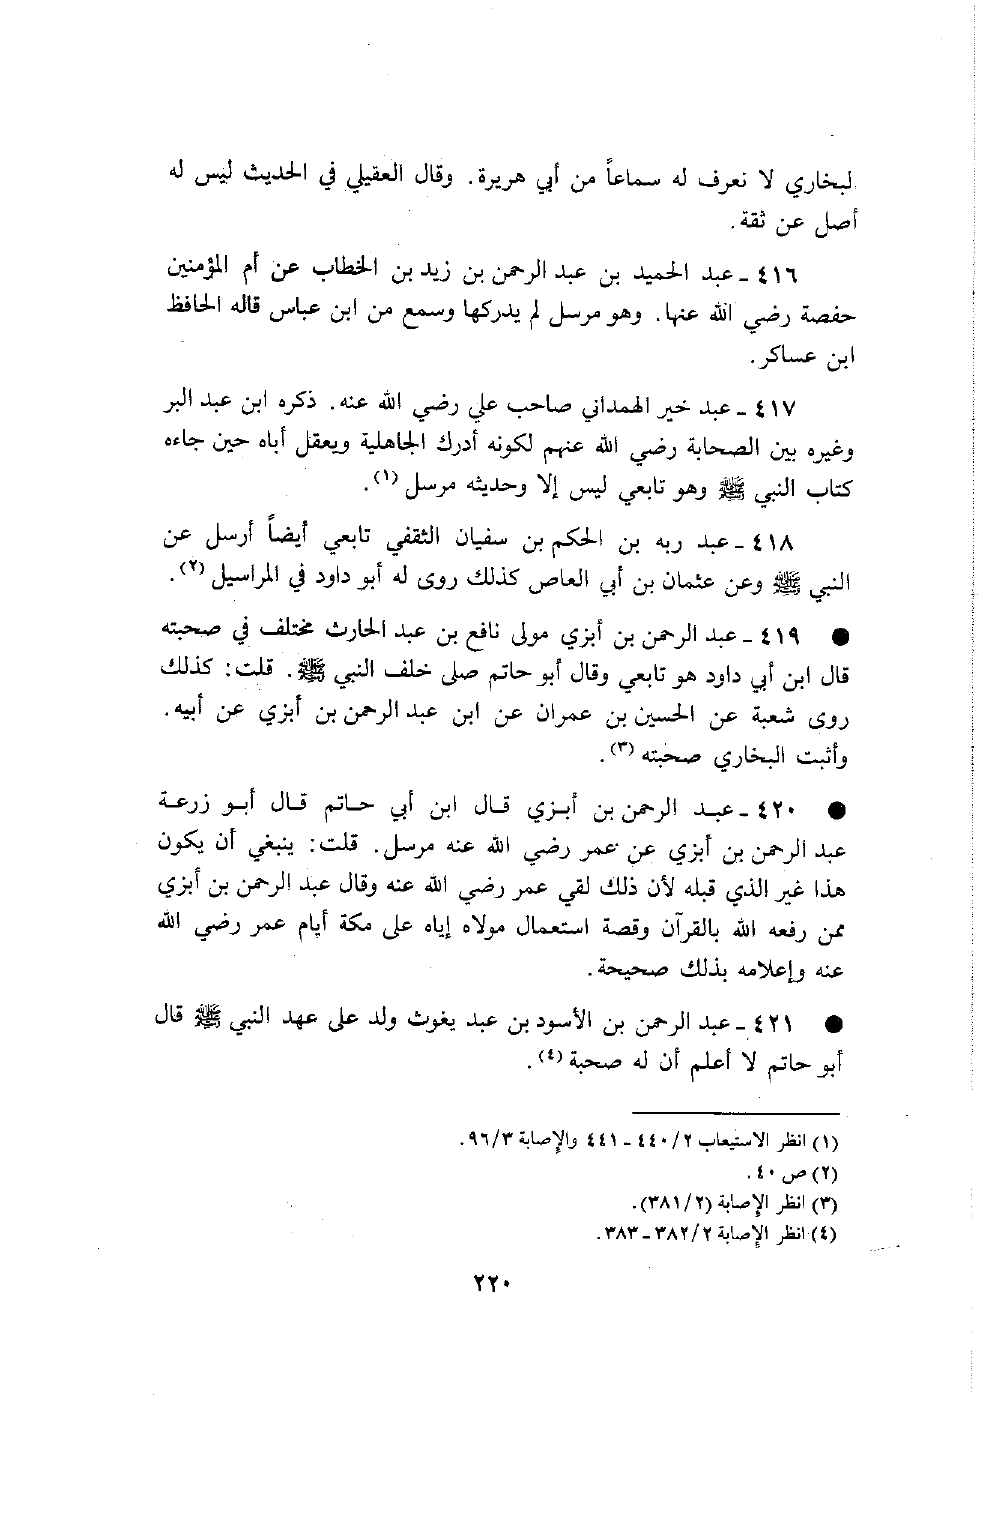 لبخاري لا نعرف له سماعاً من أبي هريرة. وقال العقيلي في الحديث ليس له
أصل عن ثقة.
٤١٦ ـ عبد الحميد بن عبد الرحمن بن زيد بن الخطاب عن أم المؤمنين
حفصة رضي الله عنها. وهو مرسل لم يدركها وسمع من ابن عباس قاله الحافظ
ابن عساكر.
٤١٧ ـ عبد خير الهمداني صاحب علي رضي الله عنه. ذكره ابن عبد البر
وغيره بين الصحابة رضي الله عنهم لكونه أدرك الجاهلية ويعقل أباه حين جاءه
كتاب النبي ﷺ وهو تابعي ليس إلا وحديثه مرسل (١).
٤١٨ ـ عبد ربه بن الحكم بن سفيان الثقفي تابعي أيضاً أرسل عن
النبي ﷺ وعن عثمان بن أبي العاص كذلك روى له أبو داود في المراسيل (٢).
● ٤١٩ ـ عبد الرحمن بن أبزي مولى نافع بن عبد الحارث مختلف في صحبته
قال ابن أبي داود هو تابعي وقال أبو حاتم صلى خلف النبي ﷺ. قلت: كذلك
روى شعبة عن الحسين بن عمران عن ابن عبد الرحمن بن أبزي عن أبيه.
وأثبت البخاري صحبته (٣).
● ٤٢٠ ـ عبد الرحمن بن أبزي قال ابن أبي حاتم قال أبو زرعة
عبد الرحمن بن أبزي عن عمر رضي الله عنه مرسل. قلت: ينبغي أن يكون
هذا غير الذي قبله لأن ذلك لقي عمر رضي الله عنه وقال عبد الرحمن بن أبزي
ممن رفعه الله بالقرآن وقصة استعمال مولاه إياه على مكة أيام عمر رضي الله
عنه وإعلامه بذلك صحيحة.
● ٤٢١ ـ عبد الرحمن بن الأسود بن عبد يغوث ولد على عهد النبي ﷺ قال
أبو حاتم لا أعلم أن له صحبة (٤).
(١) انظر الاستيعاب ٢/ ٤٤٠ ـ ٤٤١ والإصابة ٩٦/٣.
(٢) ص ٤٠.
(٣) انظر الإصابة (٣٨١/٢).
(٤) انظر الإصابة ٣٨٢/٢ ـ ٣٨٣.
٢٢٠